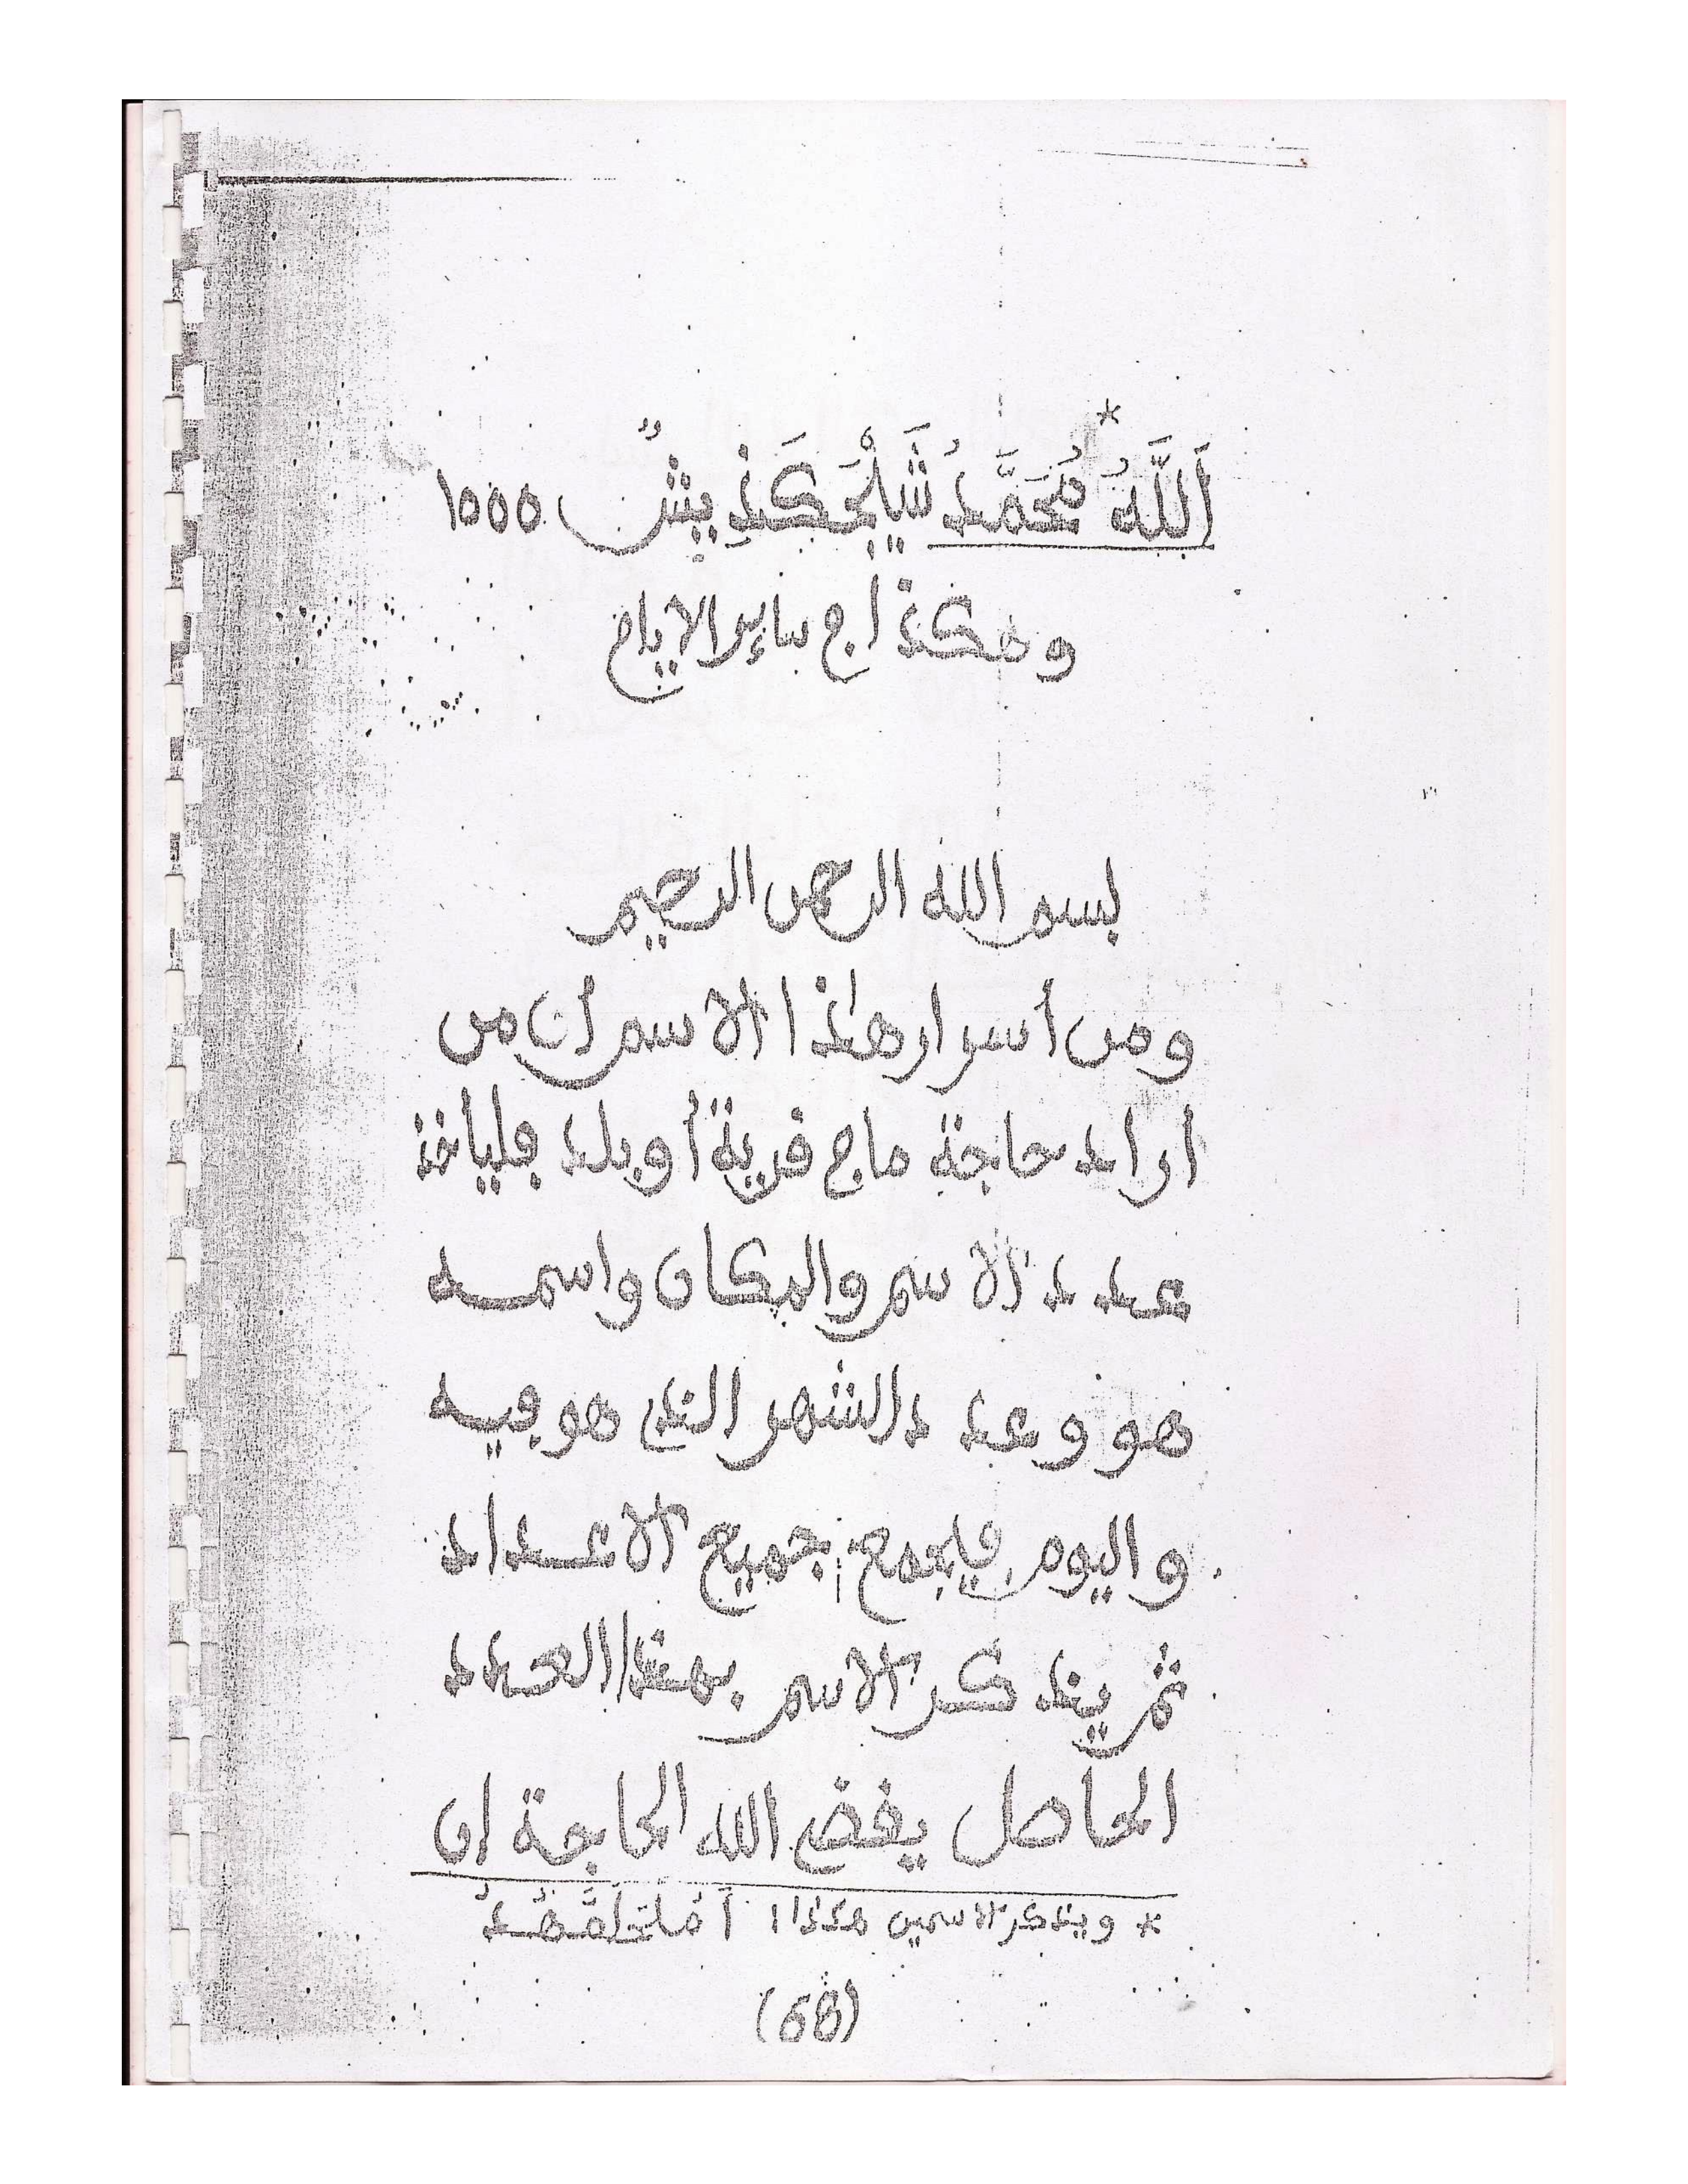 *
اَللَّهُ مُحَمَّدُ شَيْلَخْكَذِيبُشٌ ١٥٥٥
وهكذا ڢي ساير الايام
بسم الله الرحمن الرحيم
ومن أسرار هذا الاسم أن من
اراد حاجة ما ڢي قرية أو بلد ڢلياخذ
عدد الاسم والمكان واسمه
هو وعدد الشهر الذي هو ڢيه
واليوم ڢليجمع جميع الاعداد
ثم يذكر الاسم بهذا العدد
الحاصل يقضي الله الحاجة إن
* ويذكر الاسمين هكذا:
(68)